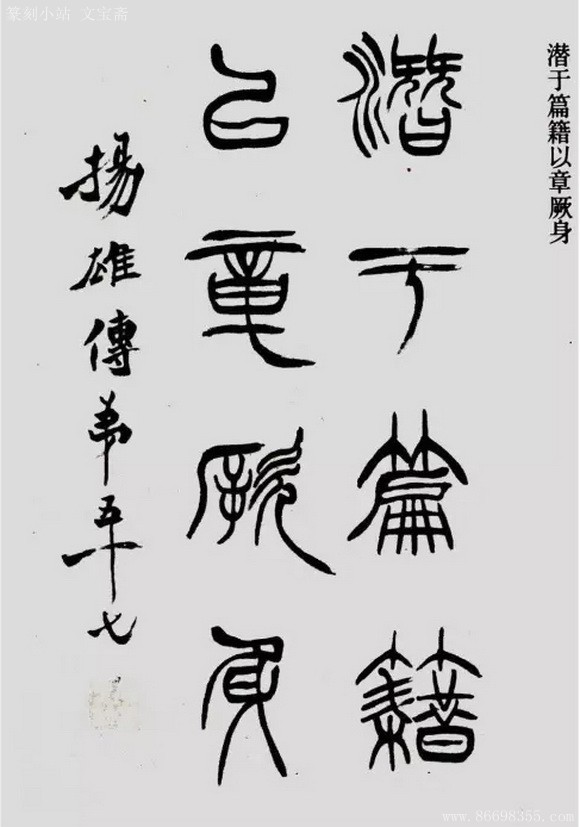 篆刻小站 文宝斋
潜于篇籍以章厥身
潛于篇籍
㠯章厥身
揚雄傳弟五十七
www.86698355.com